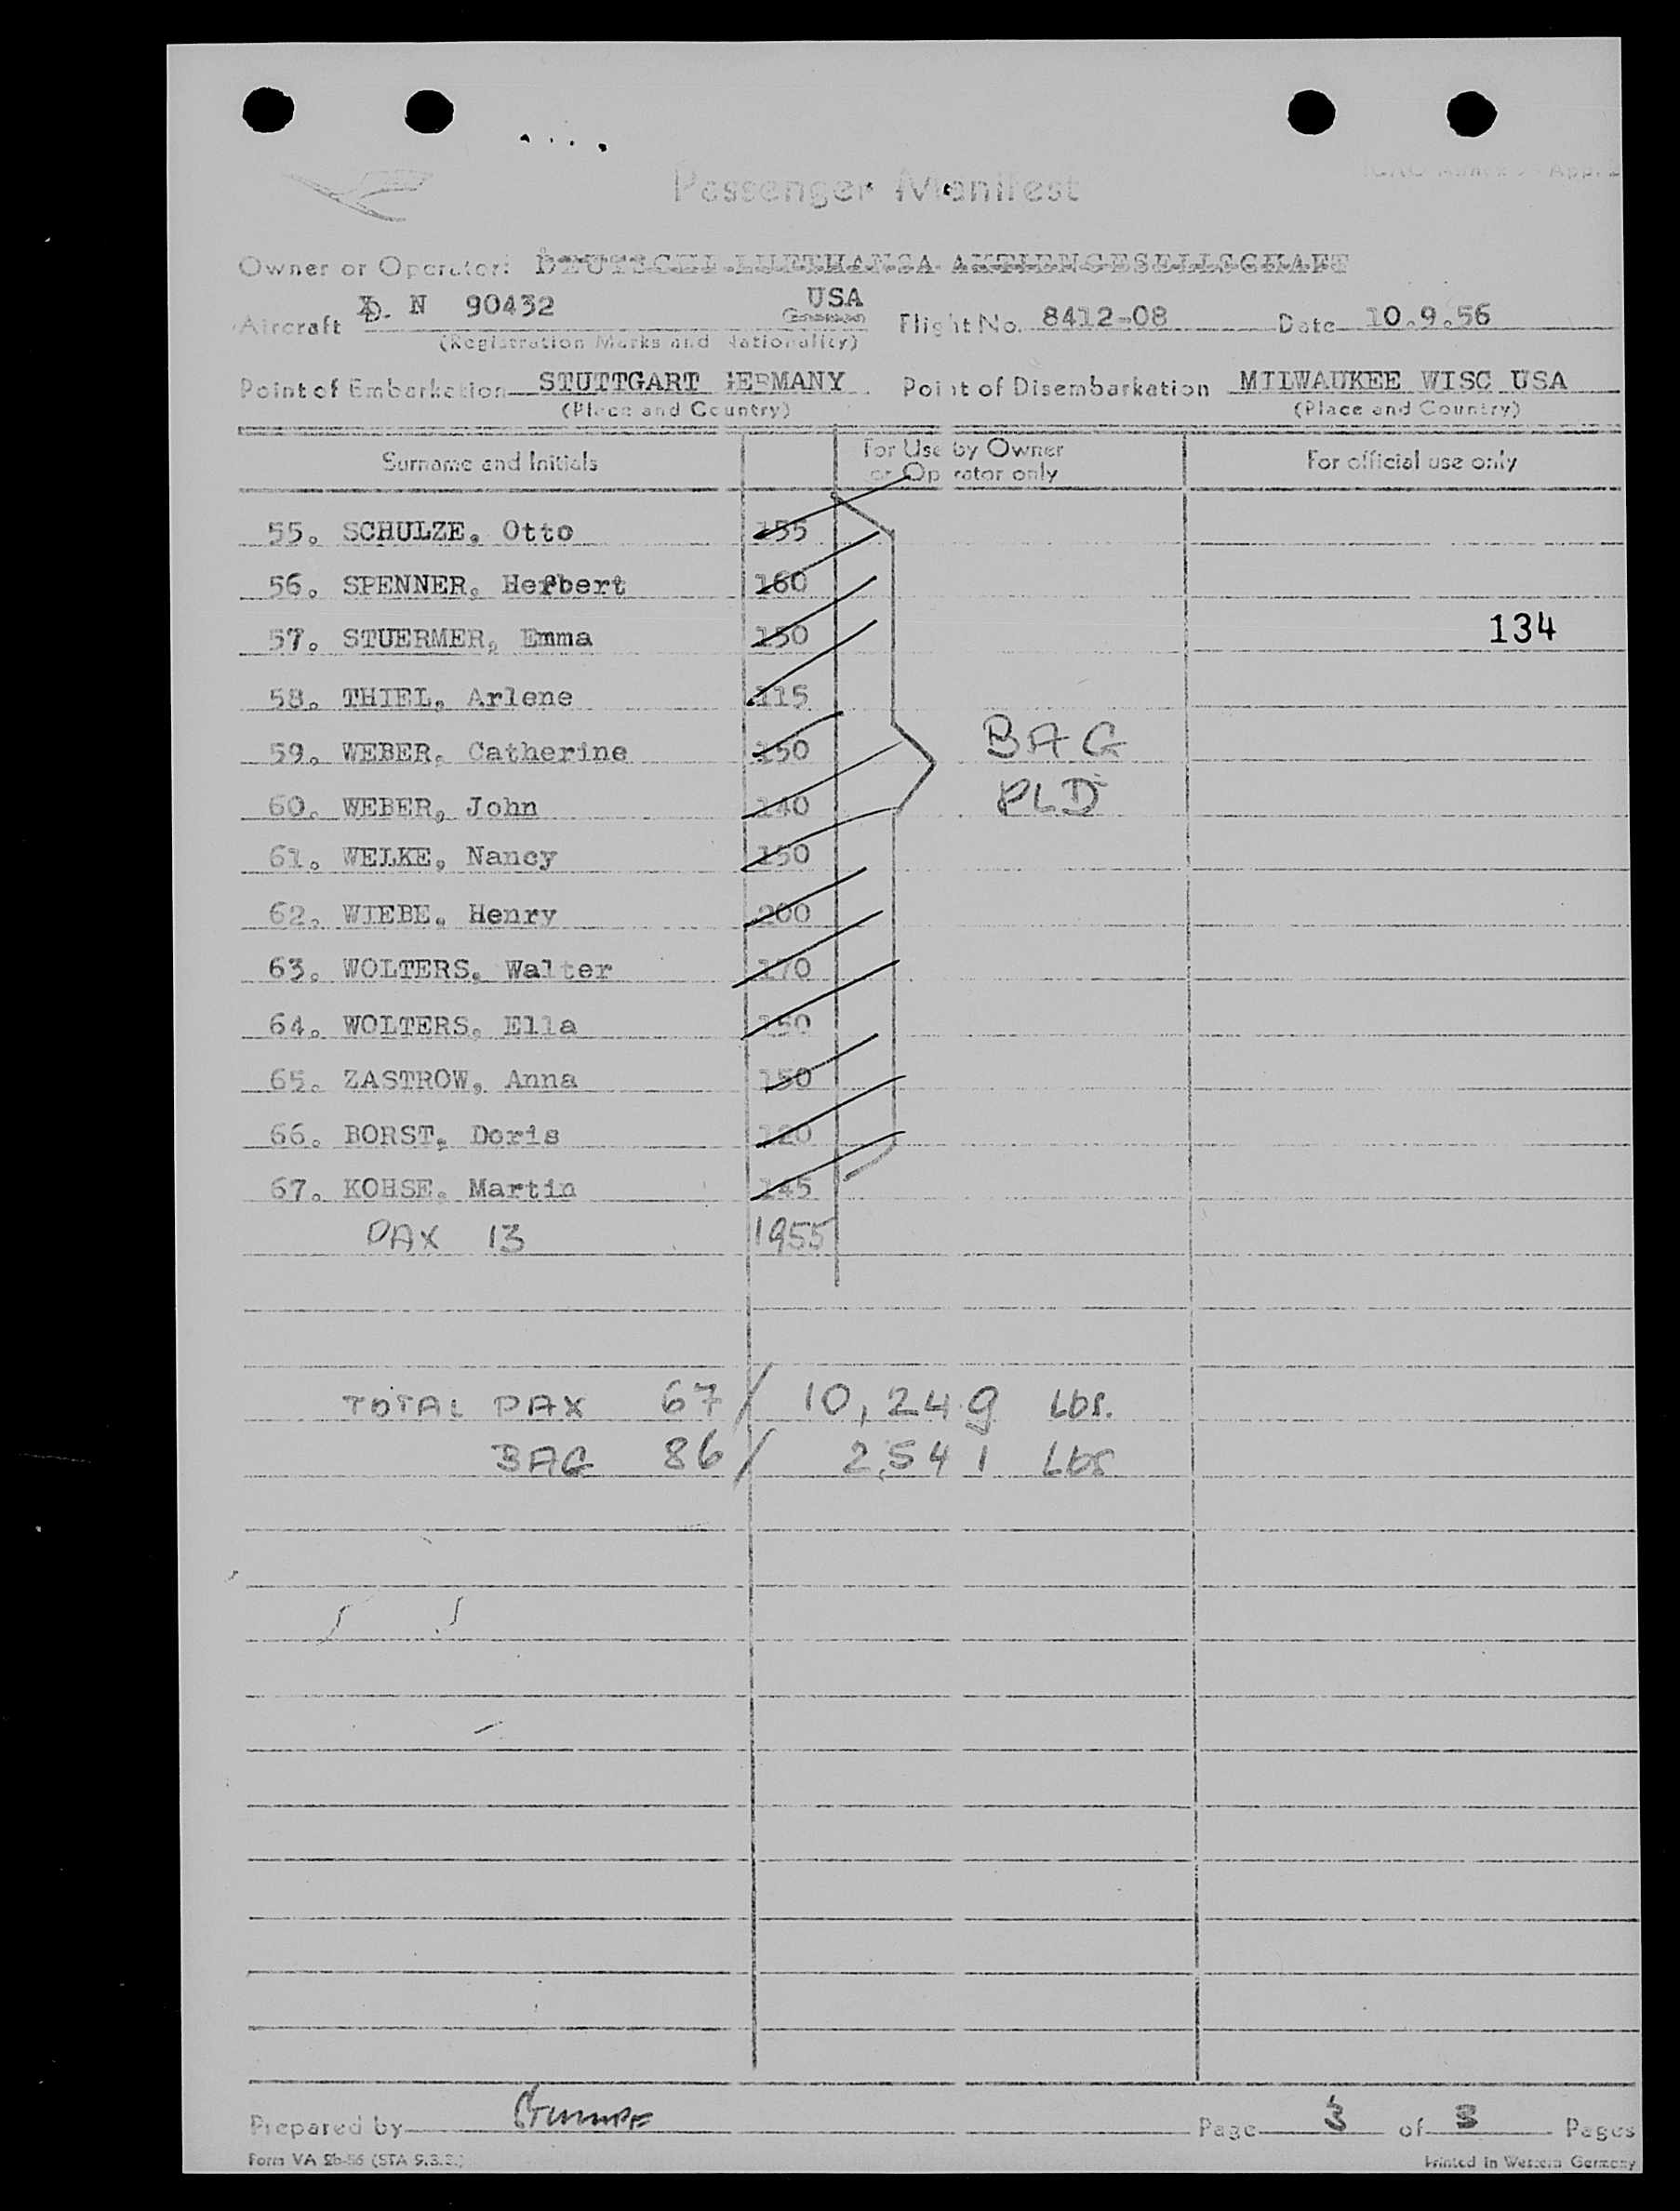 Passenger Manifest
ICAO Annex 9 App. 2
Owner or Operator: DEUTSCHE LUFTHANSA AKTIENGESELLSCHAFT
Aircraft D. N 90432 USA German Flight No. 8412-08 Date 10.9.56
(Registration Marks and Nationality)
Point of Embarkation STUTTGART GERMANY Point of Disembarkation MILWAUKEE WISC USA
(Place and Country) (Place and Country)
Surname and Initials For Use by Owner or Operator only For official use only
55. SCHULZE, Otto 155
56. SPENNER, Herbert 160
57. STUERMER, Emma 150 134
58. THIEL, Arlene 115
59. WEBER, Catherine 150 BAG
60. WEBER, John 140 PLD
61. WELKE, Nancy 150
62. WIEBE, Henry 200
63. WOLTERS, Walter 170
64. WOLTERS, Ella 150
65. ZASTROW, Anna 150
66. BORST, Doris 120
67. KOHSE, Martin 145
PAX 13 1955
TOTAL PAX 67 / 10,249 Lbs.
BAG 86 / 2,541 Lbs
Prepared by Page 3 of 3 Pages
Form VA 2b-56 (STA 9.3.3.) Printed in Western Germany